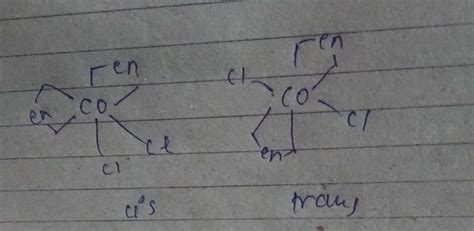 en en
Cl
en CO CO
Cl
Cl Cl
en
cis trans